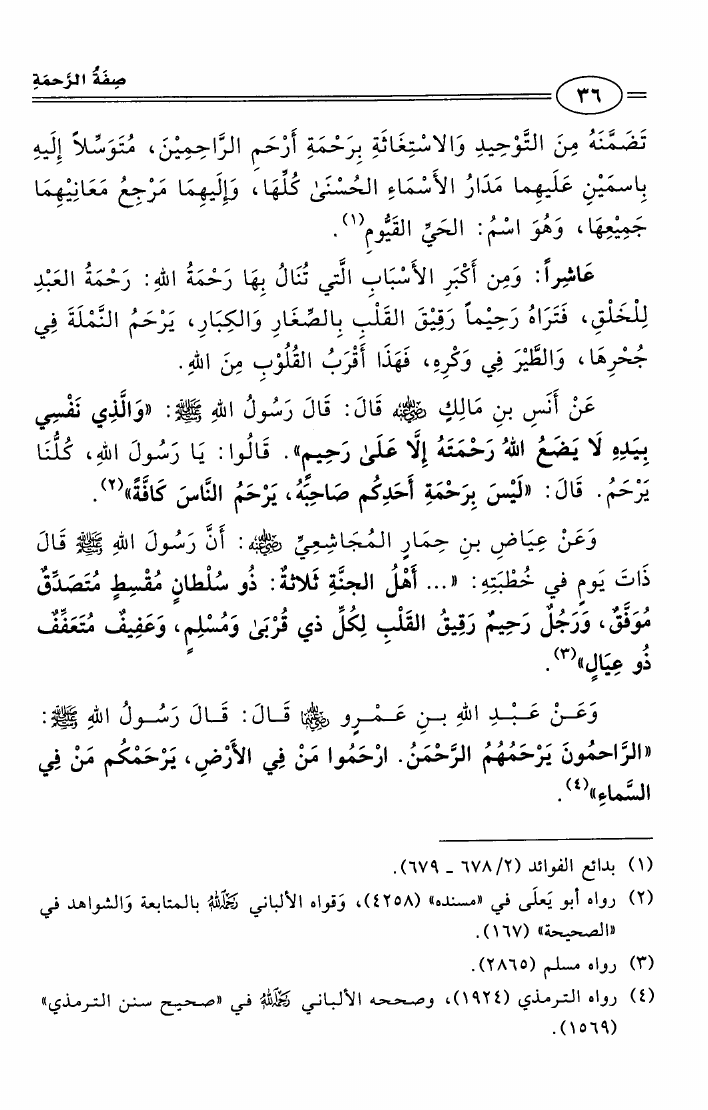 صِفَةُ الرَّحمَةِ
٣٦
تَضَمَّنَهُ مِنَ التَّوْحِيدِ وَالاسْتِغَاثَةِ بِرَحْمَةِ أَرْحَمِ الرَّاحِمِيْنَ، مُتَوَسِّلاً إِلَيهِ
بِاسمَيْنِ عَلَيهِما مَدَارُ الأَسْمَاءِ الحُسْنَىٰ كُلِّهَا، وَإِلَيهِمَا مَرْجِعُ مَعَانِيْهِمَا
جَمِيْعِهَا، وَهُوَ اسْمُ: الحَيِّ القَيُّومِ(١).
عَاشِراً: وَمِن أَكْبَرِ الأَسْبَابِ الَّتي تُنَالُ بِهَا رَحْمَةُ اللهِ: رَحْمَةُ العَبْدِ
لِلْخَلْقِ، فَتَرَاهُ رَحِيْماً رَقِيْقَ القَلْبِ بِالصِّغَارِ وَالكِبَارِ، يَرْحَمُ النَّمْلَةَ فِي
جُحْرِهَا، وَالطَّيْرَ فِي وَكْرِهِ، فَهَذَا أَقْرَبُ القُلُوْبِ مِنَ اللهِ.
عَنْ أَنَسِ بنِ مَالِكٍ رضي الله عنه قَالَ: قَالَ رَسُولُ اللهِ ﷺ: «وَالَّذِي نَفْسِي
بِيَدِهِ لَا يَضَعُ اللهُ رَحْمَتَهُ إِلَّا عَلَىٰ رَحِيمٍ». قَالُوا: يَا رَسُولَ اللهِ، كُلُّنَا
يَرْحَمُ. قَالَ: «لَيْسَ بِرَحْمَةِ أَحَدِكُم صَاحِبَهُ، يَرْحَمُ النَّاسَ كَافَّةً»(٢).
وَعَنْ عِيَاضِ بنِ حِمَارٍ المُجَاشِعِيِّ رضي الله عنه: أَنَّ رَسُولَ اللهِ ﷺ قَالَ
ذَاتَ يَومٍ في خُطْبَتِهِ: «... أَهْلُ الجنَّةِ ثَلاثةٌ: ذُو سُلْطانٍ مُقْسِطٍ مُتَصَدِّقٌ
مُوَفَّقٌ، وَرَجُلٌ رَحِيمٌ رَقِيقُ القَلْبِ لِكُلِّ ذي قُرْبَىٰ وَمُسْلِمٍ، وَعَفِيفٌ مُتَعَفِّفٌ
ذُو عِيَالٍ»(٣).
وَعَـنْ عَـبْـدِ اللهِ بـنِ عَـمْـرٍو رضي الله عنهما قَـالَ: قَـالَ رَسُـولُ اللهِ ﷺ:
«الرَّاحمُونَ يَرْحَمُهُمُ الرَّحْمَنُ. ارْحَمُوا مَنْ فِي الأَرْضِ، يَرْحَمْكُم مَنْ فِي
السَّماءِ»(٤).
(١) بدائع الفوائد (٢/ ٦٧٨ ـ ٦٧٩).
(٢) رواه أبو يَعلَى في «مسنده» (٤٢٥٨)، وَقواه الألباني رحمه الله بالمتابعة وَالشواهد في
«الصحيحة» (١٦٧).
(٣) رواه مسلم (٢٨٦٥).
(٤) رواه الترمذي (١٩٢٤)، وصححه الألباني رحمه الله في «صحيح سنن الترمذي»
(١٥٦٩).